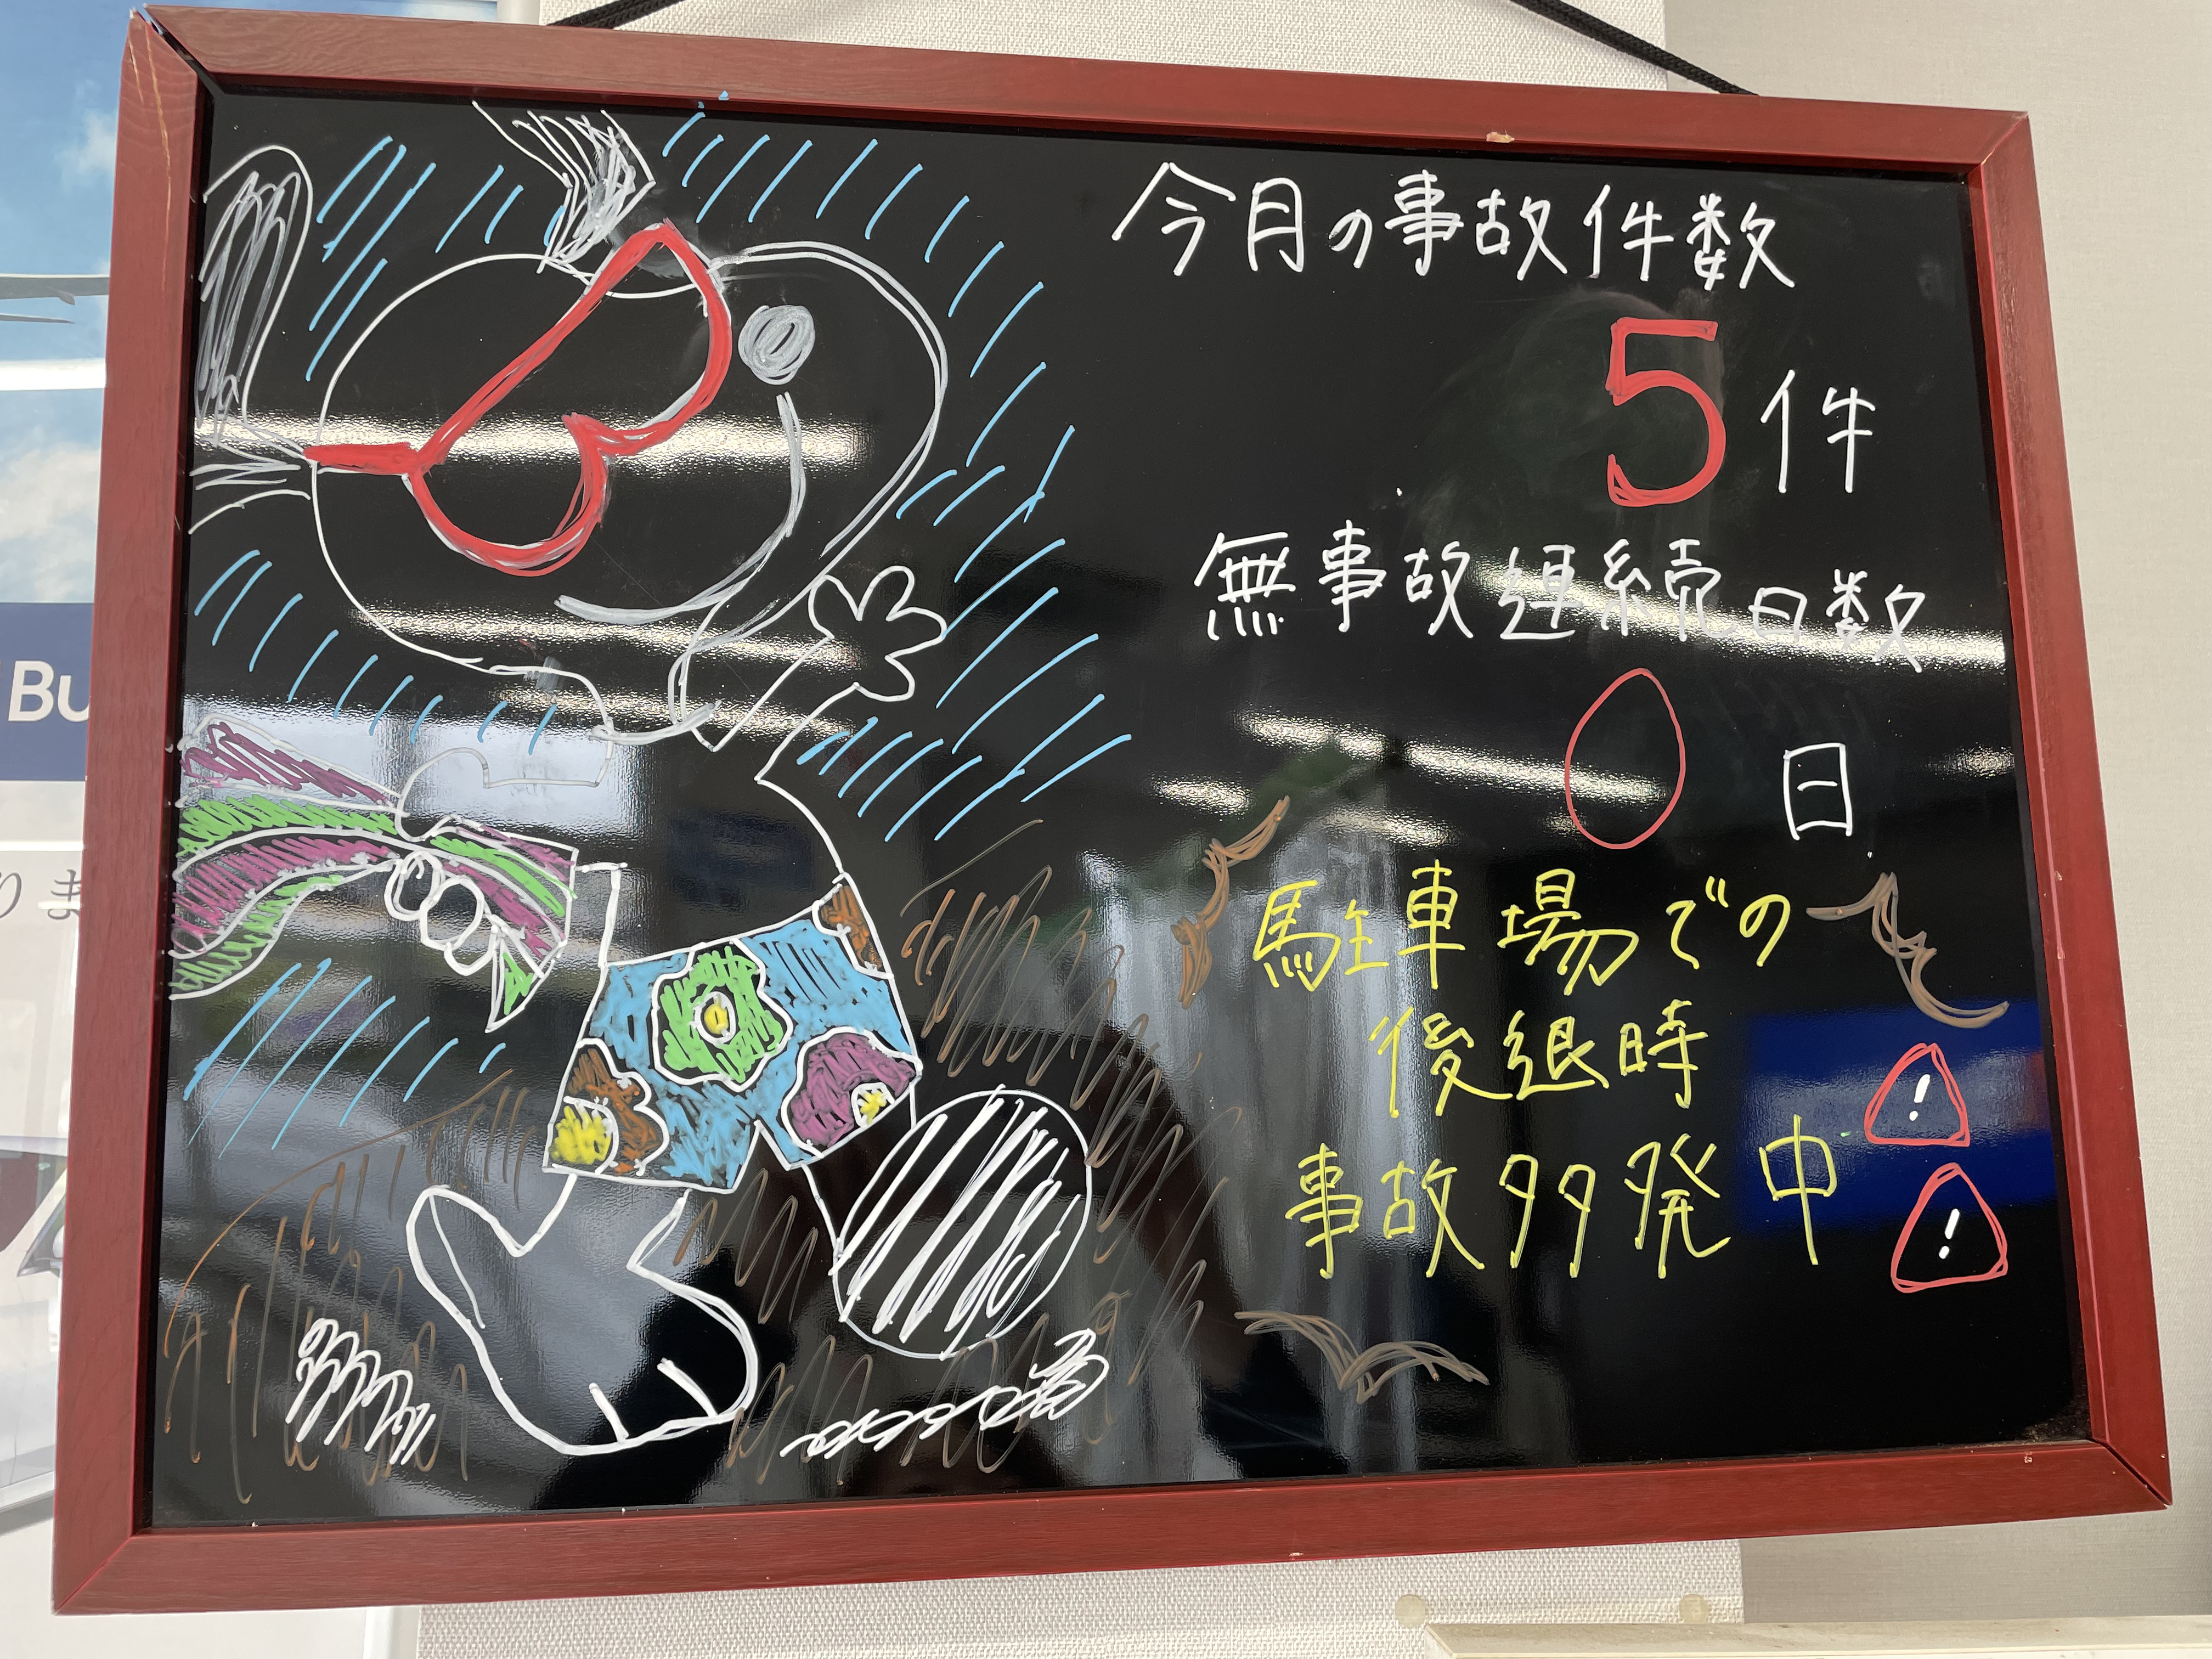 今月の事故件数
5件
無事故連続日数
0日
駐車場での
後退時
事故多発中
!
!
Bu
りま